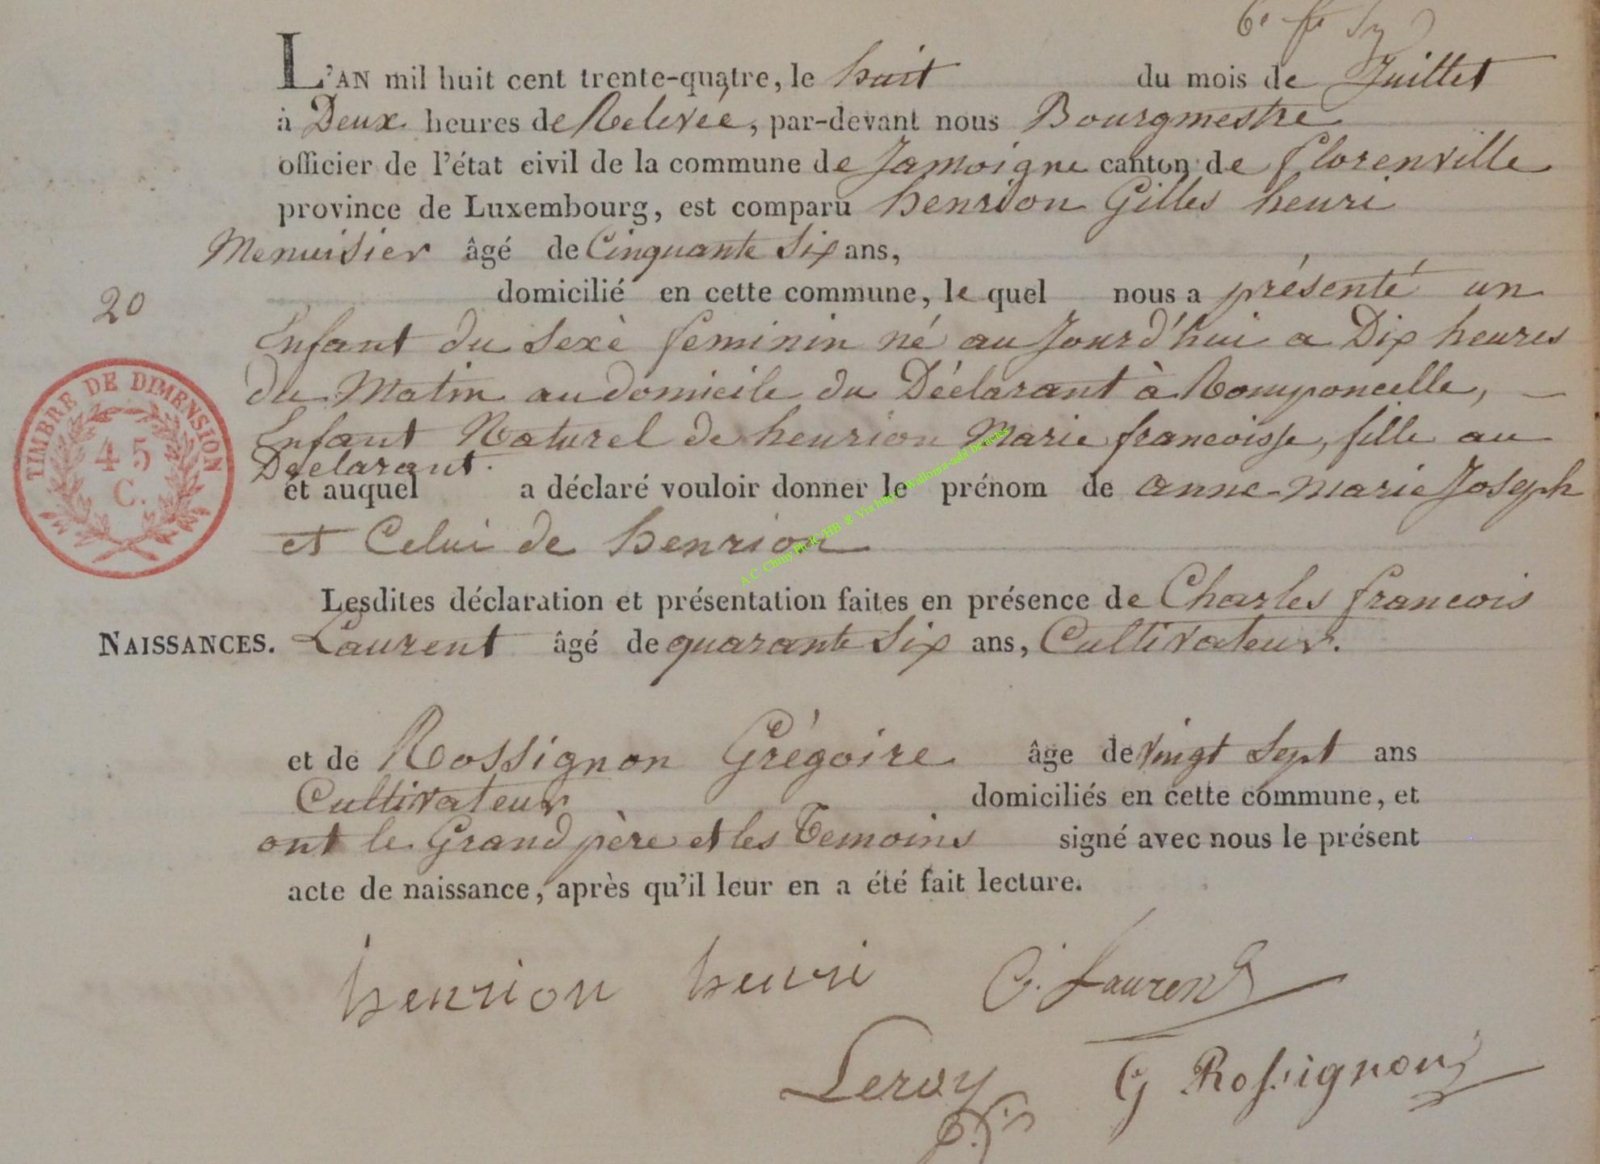 L'AN mil huit cent trente-quatre, le huit du mois de Juillet
à Deux heures de Relevée, par-devant nous Bourgmestre
officier de l'état civil de la commune de Jamoigne canton de florenville
province de Luxembourg, est comparu henrion Gilles henri
Menuisier âgé de Cinquante Six ans,
domicilié en cette commune, le quel nous a présenté un
20
Enfant du Sexè feminin né au Jourd'hui a Dix heures
du Matin au domicile du Déclarant à Romponcelle,
Enfant Naturel de henrion Marie francoisse, fille au
Déclarant.
et auquel a déclaré vouloir donner le prénom de anne-Marie Joseph
et Celui de henrion
TIMBRE DE DIMENSION
45
C.
Lesdites déclaration et présentation faites en présence de Charles francois
NAISSANCES. Laurent âgé de quarante Six ans, Cultivateur.
et de Rossignon Grégoire âge de Vingt Sept ans
Cultivateur domiciliés en cette commune, et
ont le Grand père et les Temoins signé avec nous le présent
acte de naissance, après qu'il leur en a été fait lecture.
henrion henri C. Laurent
Leroy G Rossignon